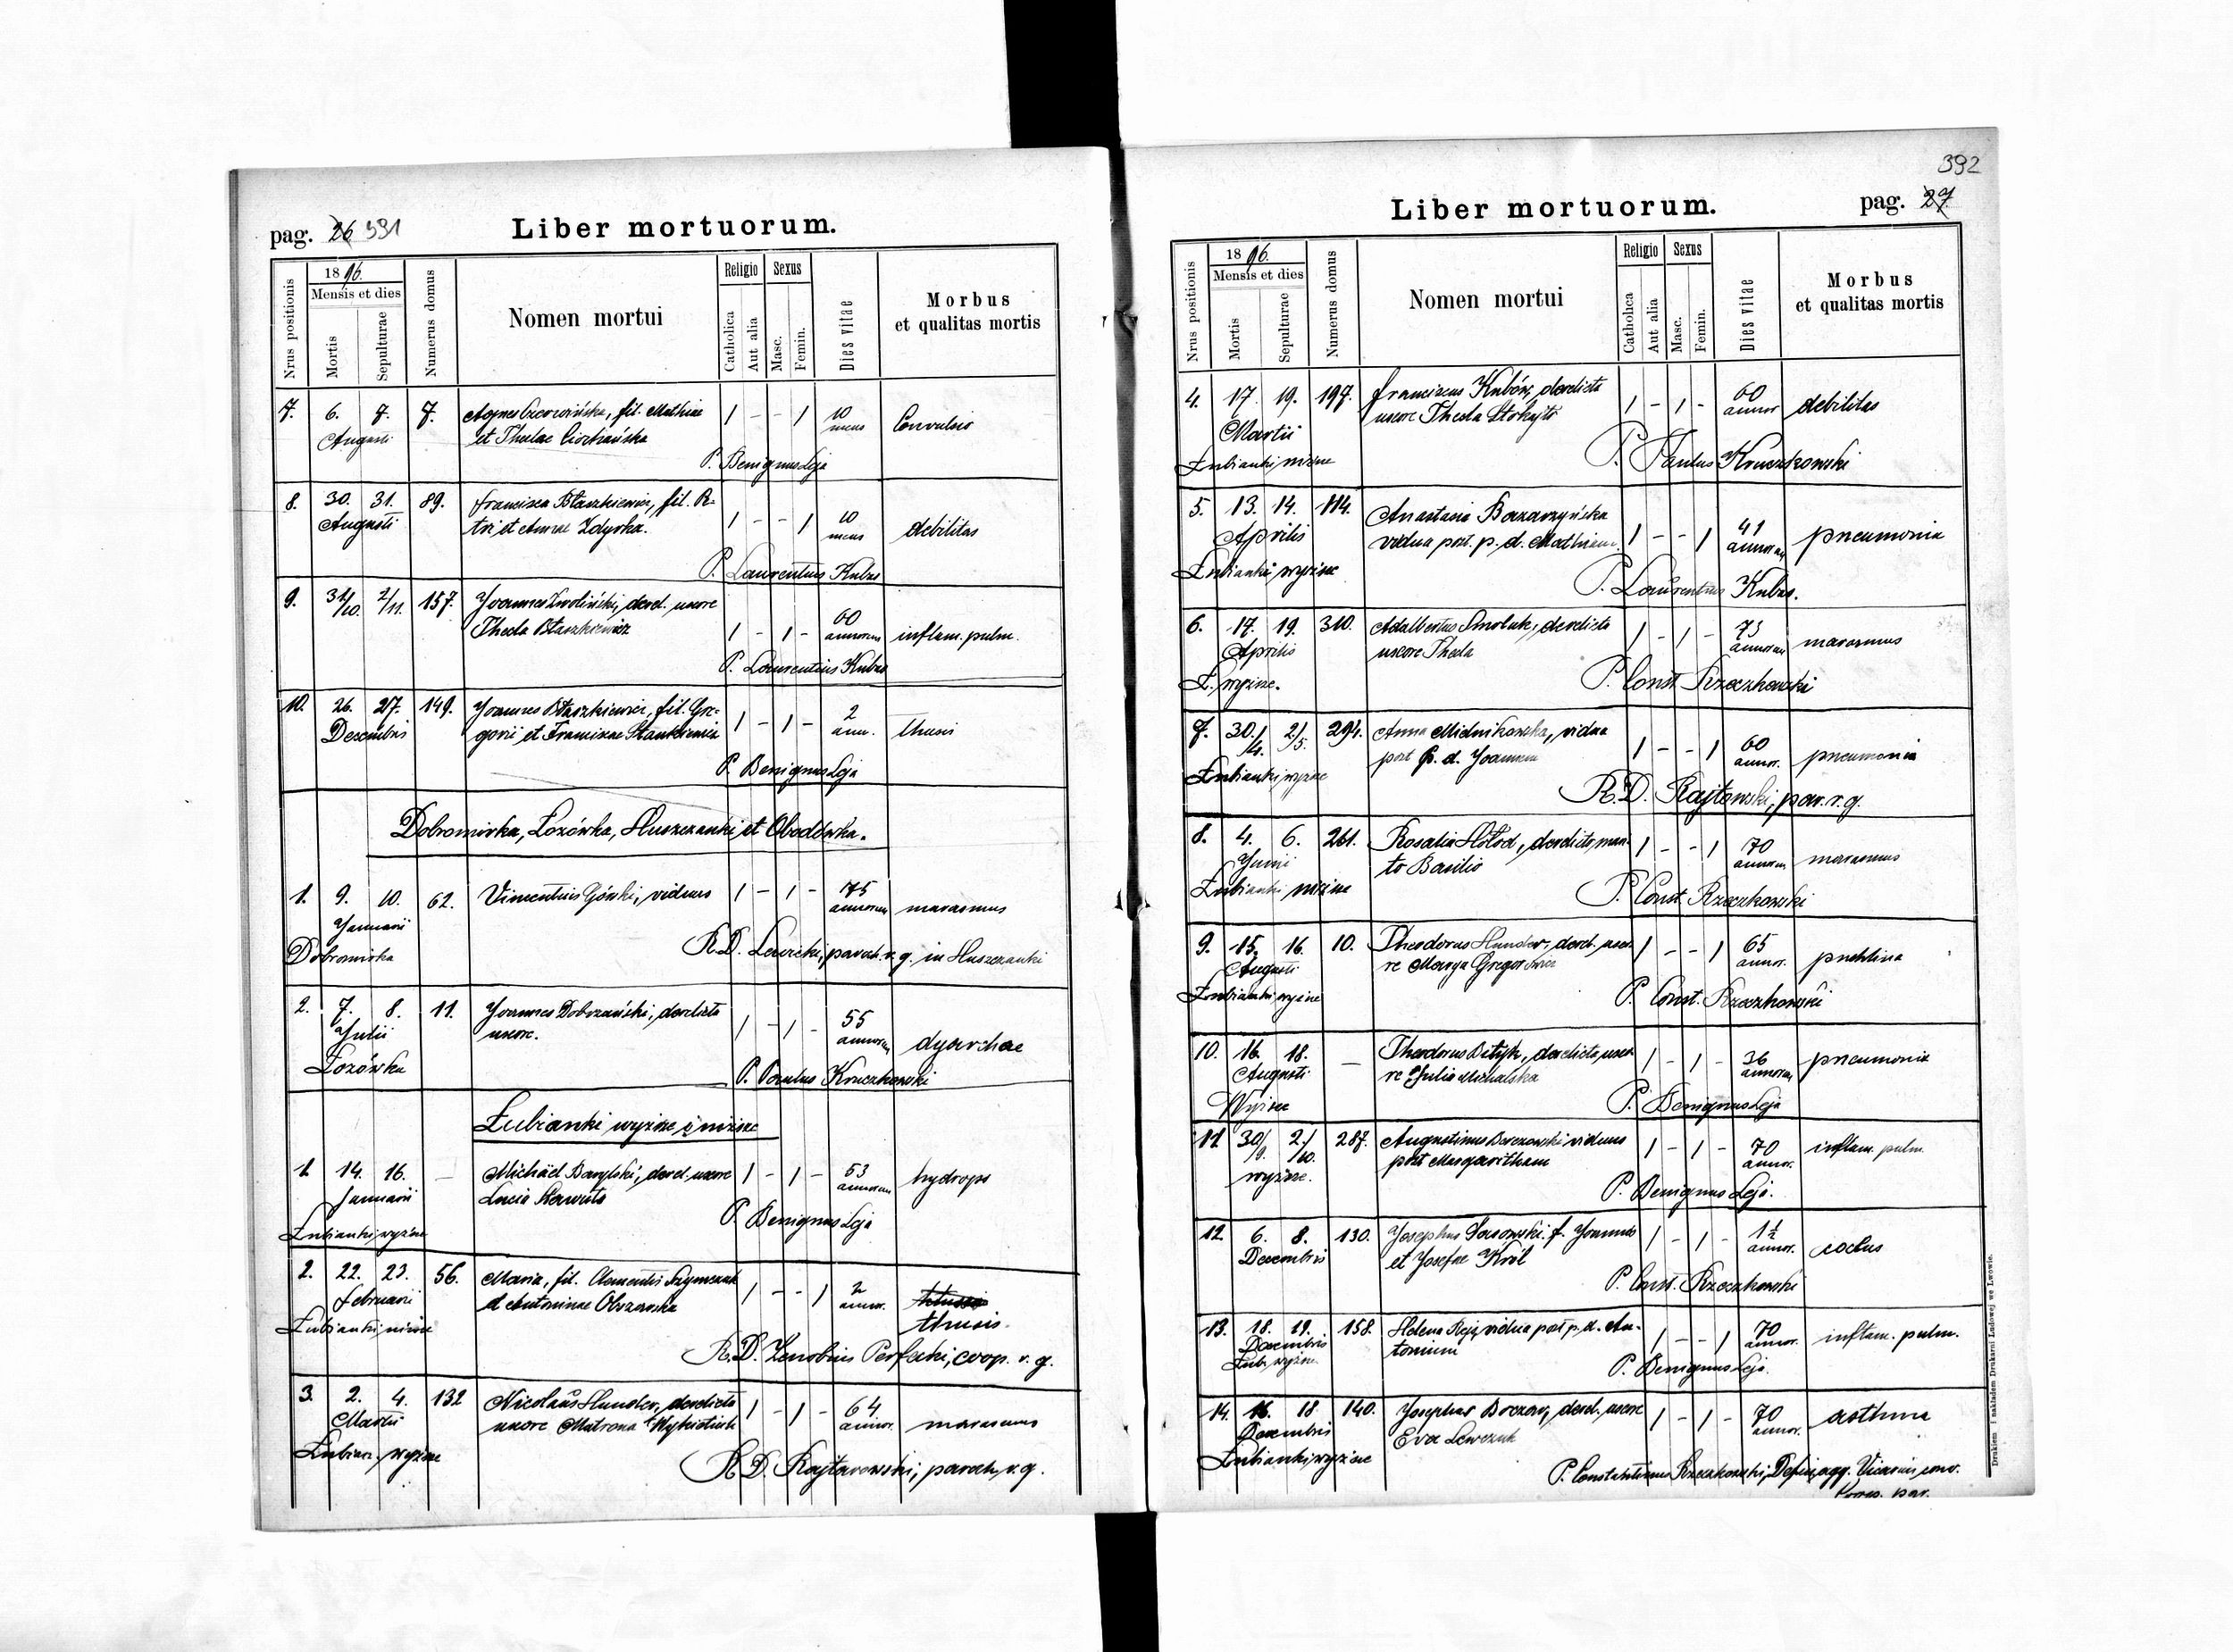 pag. 26 391
Liber mortuorum.
Nrus positionis
1896.
Mensis et dies
Mortis
Sepulturae
Numerus domus
Nomen mortui
Religio
Catholica
Aut alia
Sexus
Masc.
Femin.
Dies vitae
Morbus
et qualitas mortis
7. 6. 7. 7. Agnes Czerwińska, fil. Mathiae 1 - - 1 10
Augusti et Theclae mens Convulsio
P. Benignus Leja
8. 30. 31. 89. Francisca Błaszkiewicz, fil. Pe-
Augusti tri et Annae Zdyrka. 1 - - 1 10 mens debilitas
P. Laurentius Kubas
9. 31/10. 2/11. 157. Joannes Zwoliński, derel. uxore
Thecla Błaszkiewicz 1 - 1 - 60 annorum inflam. pulm.
P. Laurentius Kubas
10. 26. 27. 149. Joannes Błaszkiewicz, fil. Gre-
Decembris gorii et Franciscae Stankiewicz 1 - 1 - 2 ann. thusis
P. Benignus Leja
Dobromirka, Łozówka, Hłuszczanki et Obodówka.
1. 9. 10. 62. Vincentius Górski, viduus 1 - 1 - 75
Januarii annorum marasmus
Dobromirka R.D. Lewicki, paroch. r. g. in Hłuszczanki
2. 7. 8. 11. Joannes Dobrzański, derelicta
Julii uxore. 1 - 1 - 55 annorum dyarrhae
Łozówka
P. Paulus Kruczkowski
Łubianki wyższe i niższe
1. 14. 16. — Michaël Barylski, derel. uxore 1 - 1 - 53
Januarii Lucia annorum hydrops
Łubianki wyższe P. Benignus Leja
2. 22. 23. 56. Maria, fil. Clementis Szymczak
Februarii et Antoninae 1 - - 1 2 annor. thusis.
Łubianki niższe
R.D. Zenobius Perfecki, coop. r. g.
3. 2. 4. 132 Nicolaus Hunder, derelicta
Martii uxore Matrona 1 - 1 - 64 annor. marasmus
Łubian. wyższe
R.D. Rajtarowski, paroch. r. g.
392
Liber mortuorum.
pag. 27.
Nrus positionis
1896.
Mensis et dies
Mortis
Sepulturae
Numerus domus
Nomen mortui
Religio
Catholica
Aut alia
Sexus
Masc.
Femin.
Dies vitae
Morbus
et qualitas mortis
4. 17. 19. 197. Franciscus Kubów, derelicta
Martii uxore Thecla 1 - 1 - 60 annor debilitas
Łubianki niższe P. Paulus Kruczkowski
5. 13. 14. 114. Anastasia
Aprilis vidua post. p. d. Mathiam 1 - - 1 41 annorum pneumonia
Łubianki wyższe P. Laurentius Kubas.
6. 17. 19. 310. Adalbertus Smoluk, derelicta
Aprilis uxore Thecla 1 - 1 - 73 annorum marasmus
Ł. wyższe. P. Const. Rzeczkowski
7. 30./4. 2/5. 294. Anna Mielnikowska, vidua
post p. d. Joannem 1 - - 1 60 annor. pneumonia
Łubianki wyższe R.D. Rajtowski, par. r. g.
8. 4. 6. 261. Rosalia Hołod, derelicto mari-
Junii to Basilio 1 - - 1 70 annorum marasmus
Łubianki niższe P. Const. Rzeczkowski
9. 15. 16. 10. Theodorus Hunder, derel. uxo-
Augusti re Marya 1 - - 1 65 annor.
Łubianki wyższe P. Const. Rzeczkowski
10. 16. 18. — Theodorus Bityk, derelicta uxo-
Augusti re Julia Michalska 1 - 1 - 36 annorum pneumonia
Wyższe P. Benignus Leja
11. 30/9. 2/10. 287. Augustinus viduus
post Margaritham 1 - 1 - 70 annor. inflam. pulm.
wyższe. P. Benignus Leja.
12. 6. 8. 130. Josephus f. Joannis
Decembris et Josefae Król 1 - 1 - 1½ annor.
P. Const. Rzeczkowski
13. 18. 19. 158. Helena vidua post p. d. An-
Decembris tonium 1 - - 1 70 annor. inflam. pulm.
Łub. wyższe P. Benignus Leja.
14. 16. 18 140. Josephus derel. uxore
Decembris Eva Lewczuk 1 - 1 - 70 annor. asthma
Łubianki wyższe
P. Constantinus Rzeczkowski, Vicarius conv.
Drukiem i nakładem Drukarni Ludowej we Lwowie.